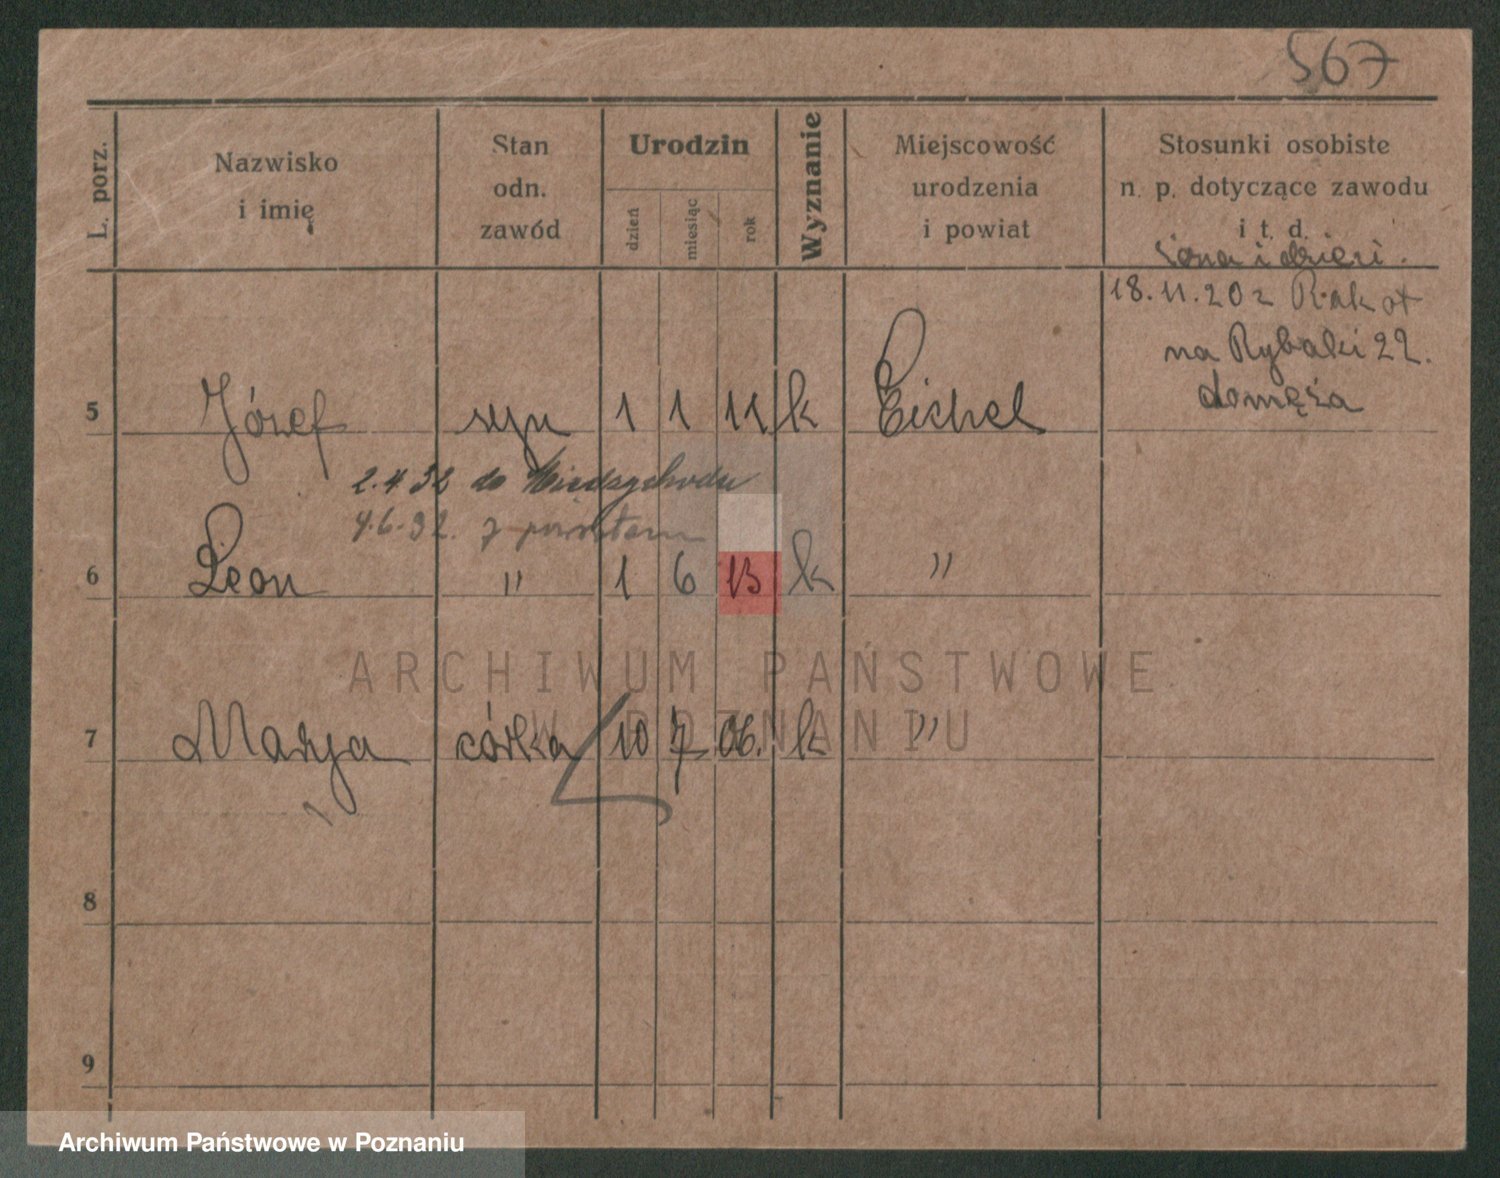 567
L. porz.
Nazwisko
i imię
Stan
odn.
zawód
Urodzin
dzień
miesiąc
rok
Wyznanie
Miejscowość
urodzenia
i powiat
Stosunki osobiste
n. p. dotyczące zawodu
i t. d.
żona i dzieci.
18.11.20 z Rakot
na Rybaki 22.
do męża
5 Józef syn 1 1 11 k Eichel
2.4 32 do Międzychodu
4.6.32. z powrotem
6 Leon " 1 6 13 k "
ARCHIWUM PAŃSTWOWE
W POZNANIU
7 Marya córka 10 7 06. k "
8
9
Archiwum Państwowe w Poznaniu